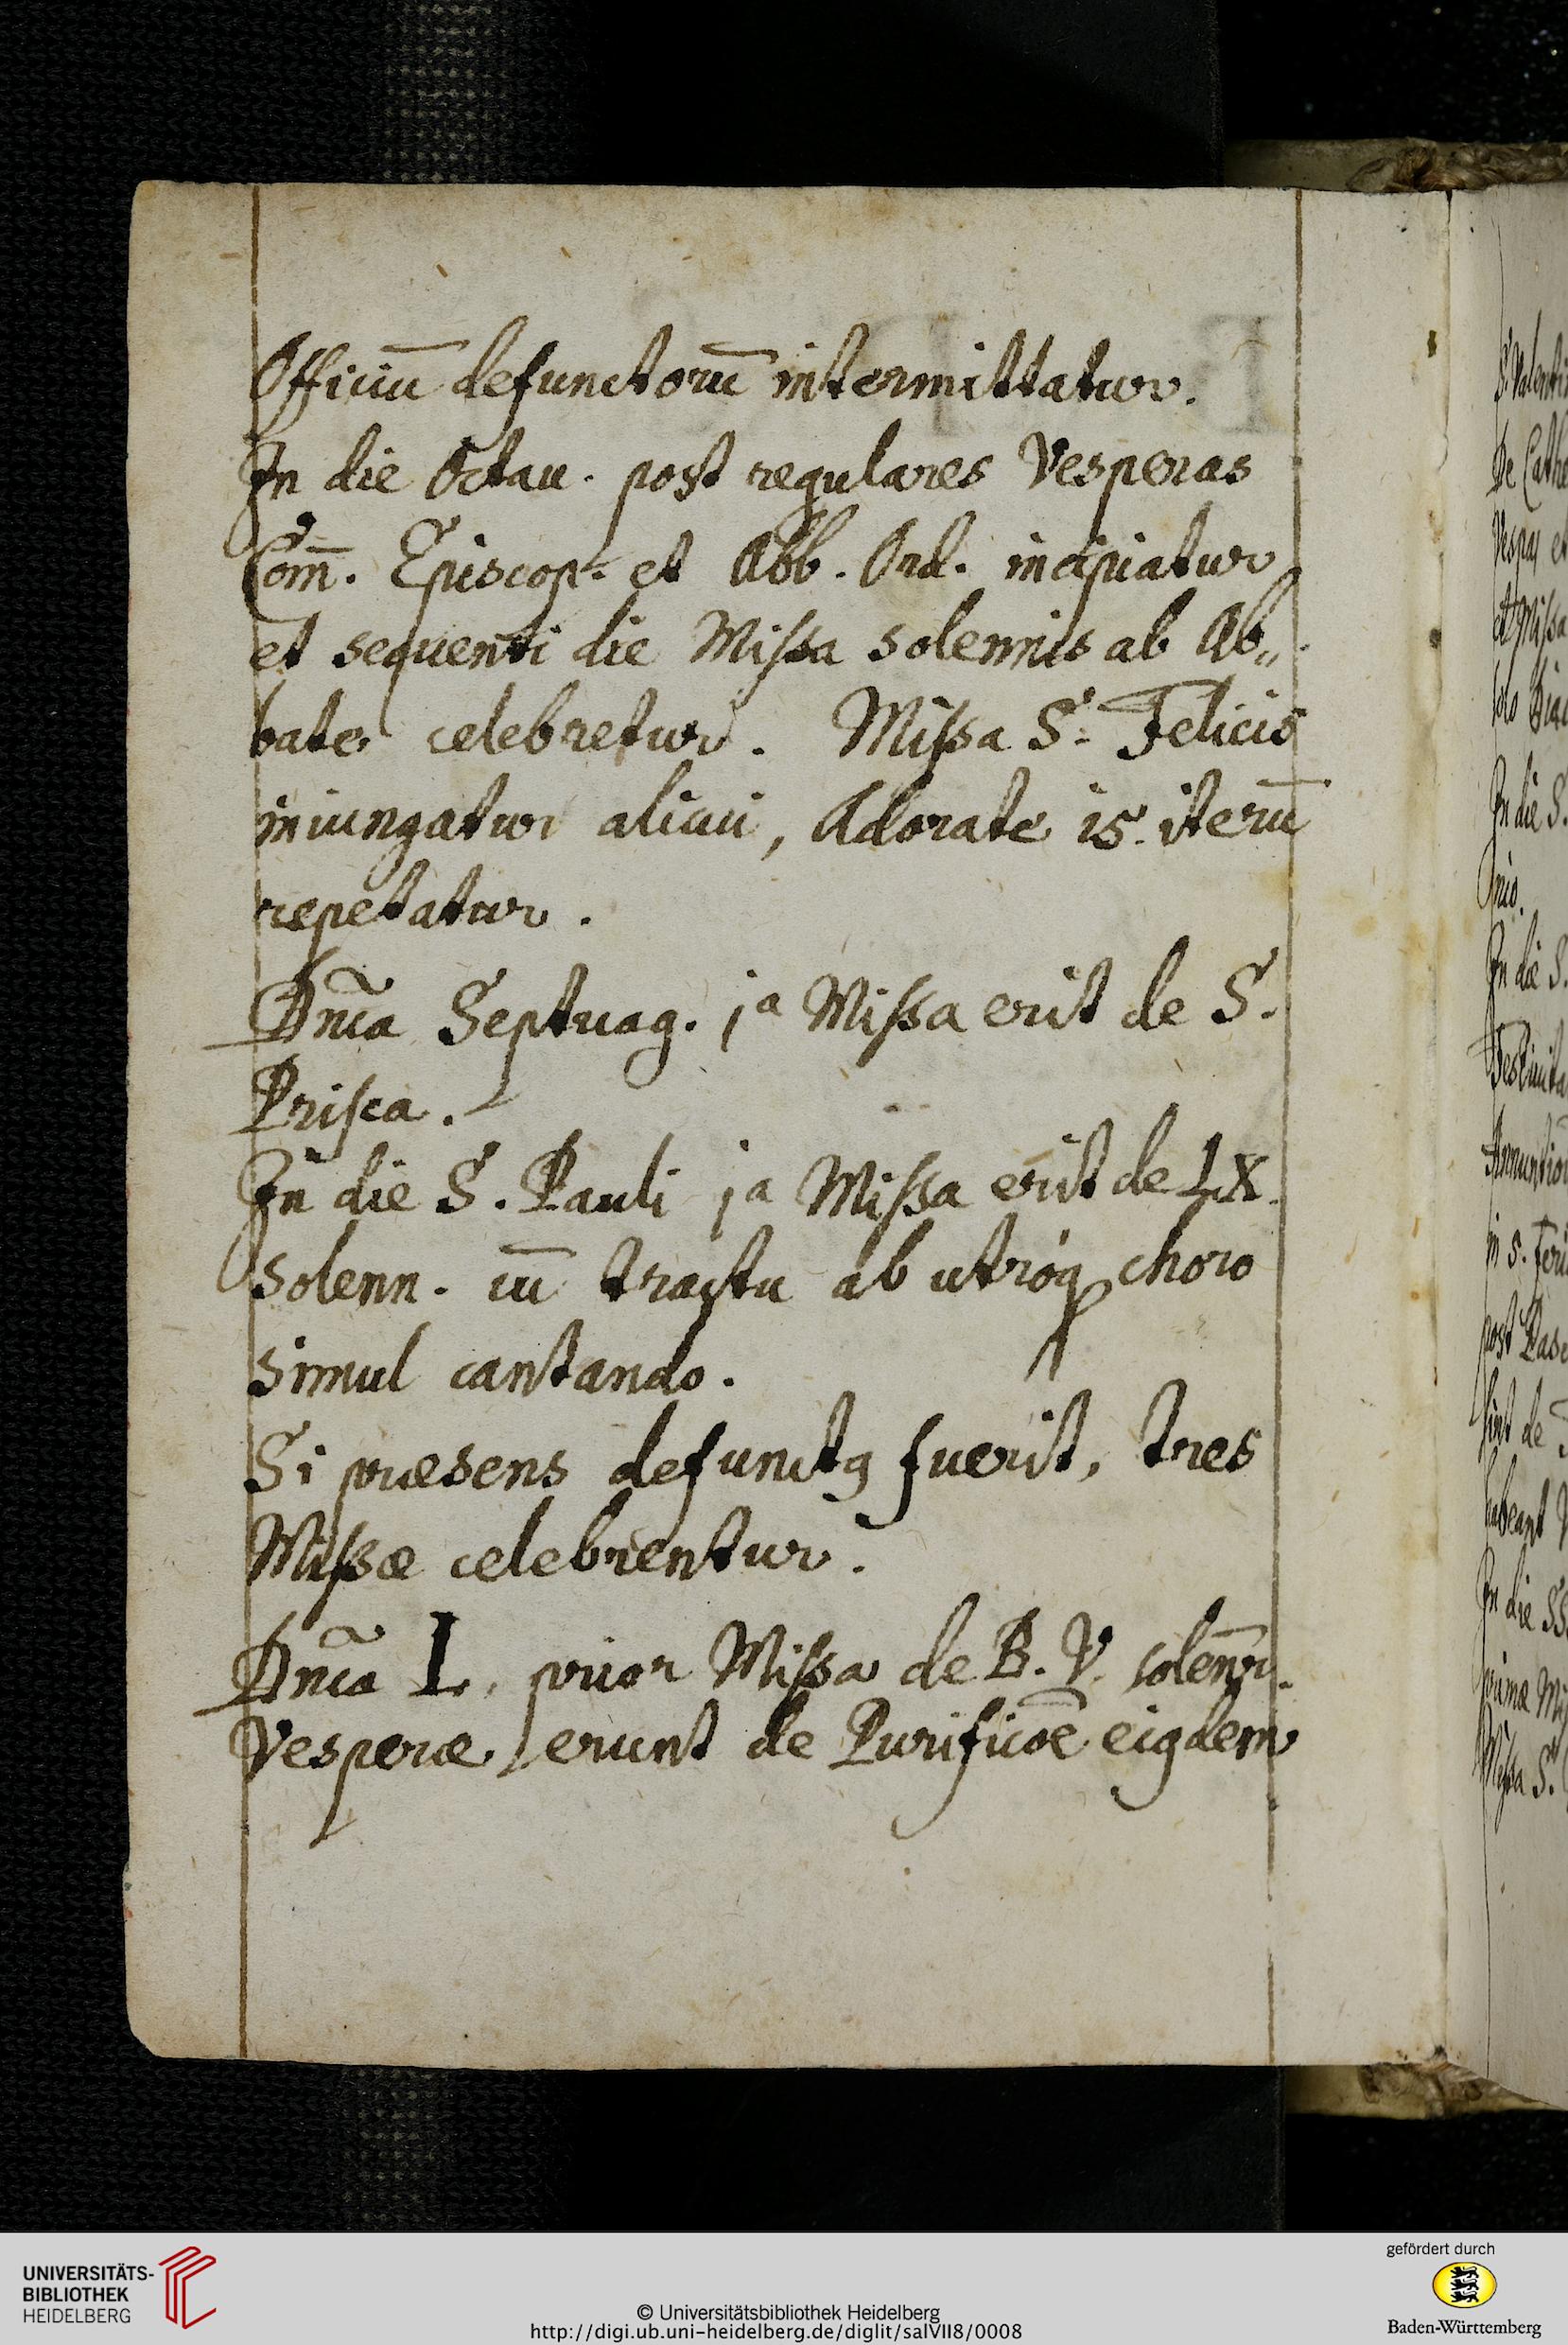 Officiū defunctorū intermittatur.
In die Octau. post regulares Vesperas
Com̄. Episcop. et Abb. Ord. incipiatur
et sequenti die Missa solennis ab Ab„
bate celebretur. Missa S. Felicis
iniungatur alicui, Adorate 15. iterū
repetatur.
Dn̄ca Septuag. ja Missa erit de S.
Prisca.
In die S. Pauli ja Missa erit de LX.
solenn. cū tractu ab utróq choro
simul cantando.
Si praesens defunctꝯ fuerit, tres
Missae celebrentur.
Dn̄ca L. prior Missa de B. V. solen̄r.
Vesperae erunt de Purificōe eiꝯdem
S. Valenti
De Cathe
Vesp. et
et Missa
In die S.
In die S.
post Pasc
sint de
habeant
In die SS.
primae Mi
Missa S.
UNIVERSITÄTS-
BIBLIOTHEK
HEIDELBERG
© Universitätsbibliothek Heidelberg
http://digi.ub.uni-heidelberg.de/diglit/salVII8/0008
gefördert durch
Baden-Württemberg